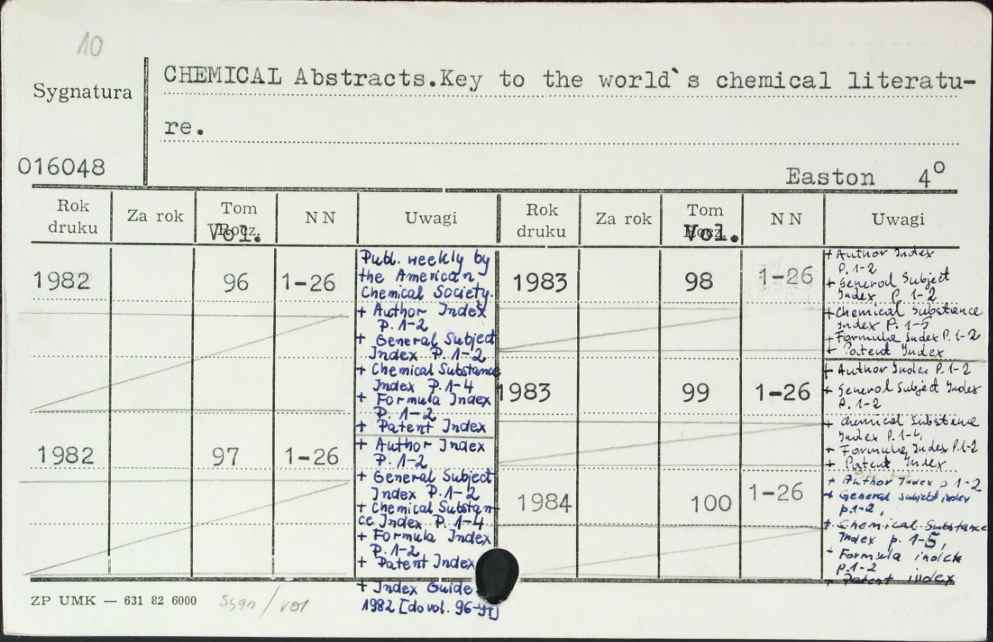 10
Sygnatura
CHEMICAL Abstracts.Key to the world`s chemical literatu-
re.
016048
Easton 4°
Rok druku
Za rok
Tom
Vol.
NN
Uwagi
Rok druku
Za rok
Tom
Vol.
NN
Uwagi
1982 96 1-26
Publ. weekly by
the American
Chemical Society.
+ Author Index
P. 1-2
+ General Subject
Index P. 1-2
+ Chemical Substance
Index P. 1-4
+ Formula Index
P. 1-2
+ Patent Index
1982 97 1-26
+ Author Index
P. 1-2
+ General Subject
Index P. 1-2
+ Chemical Substan-
ce Index P. 1-4
+ Formula Index
P. 1-2
+ Patent Index
+ Index Guide
1982 [do vol. 96-97]
1983 98 1-26
+ Author Index
P. 1-2
+ General Subject
Index P. 1-2
+ Chemical Substance
Index P. 1-5
+ Formula Index P. 1-2
+ Patent Index
1983 99 1-26
+ Author Index P. 1-2
+ General Subject Index
P. 1-2
+ Chemical Substance
Index P. 1-4
+ Formula Index P. 1-2
+ Patent Index
1984 100 1-26
+ Author Index p 1-2
+ General subject index
p. 1-2,
+ Chemical Substance
Index p. 1-5,
+ Formula
p. 1-2
+ Patent index
ZP UMK — 631 82 6000